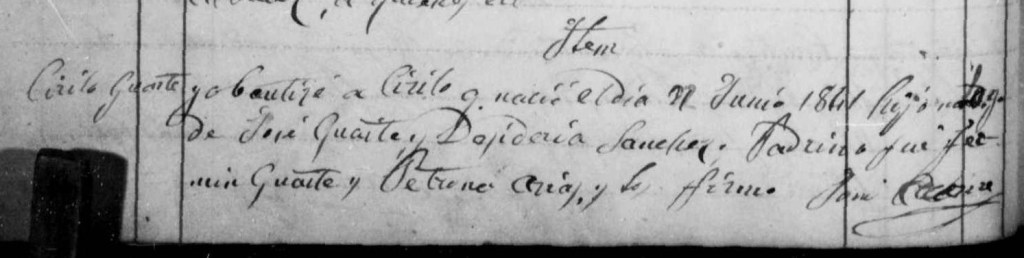 Item
Cirilo Guarte yo bautizé a Cirilo q. nació el dia Junio 1861 hijo
de José Guarte y Desideria Sanchez. Padrino fué Fer-
min Guarte y Petrona Arias, y lo firmo José